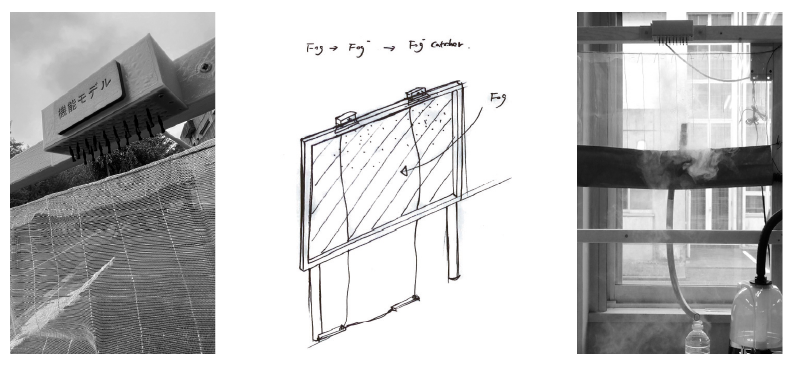 機能モデル
Fog → Fog⁻ → Fog⁻ catcher.
Fog